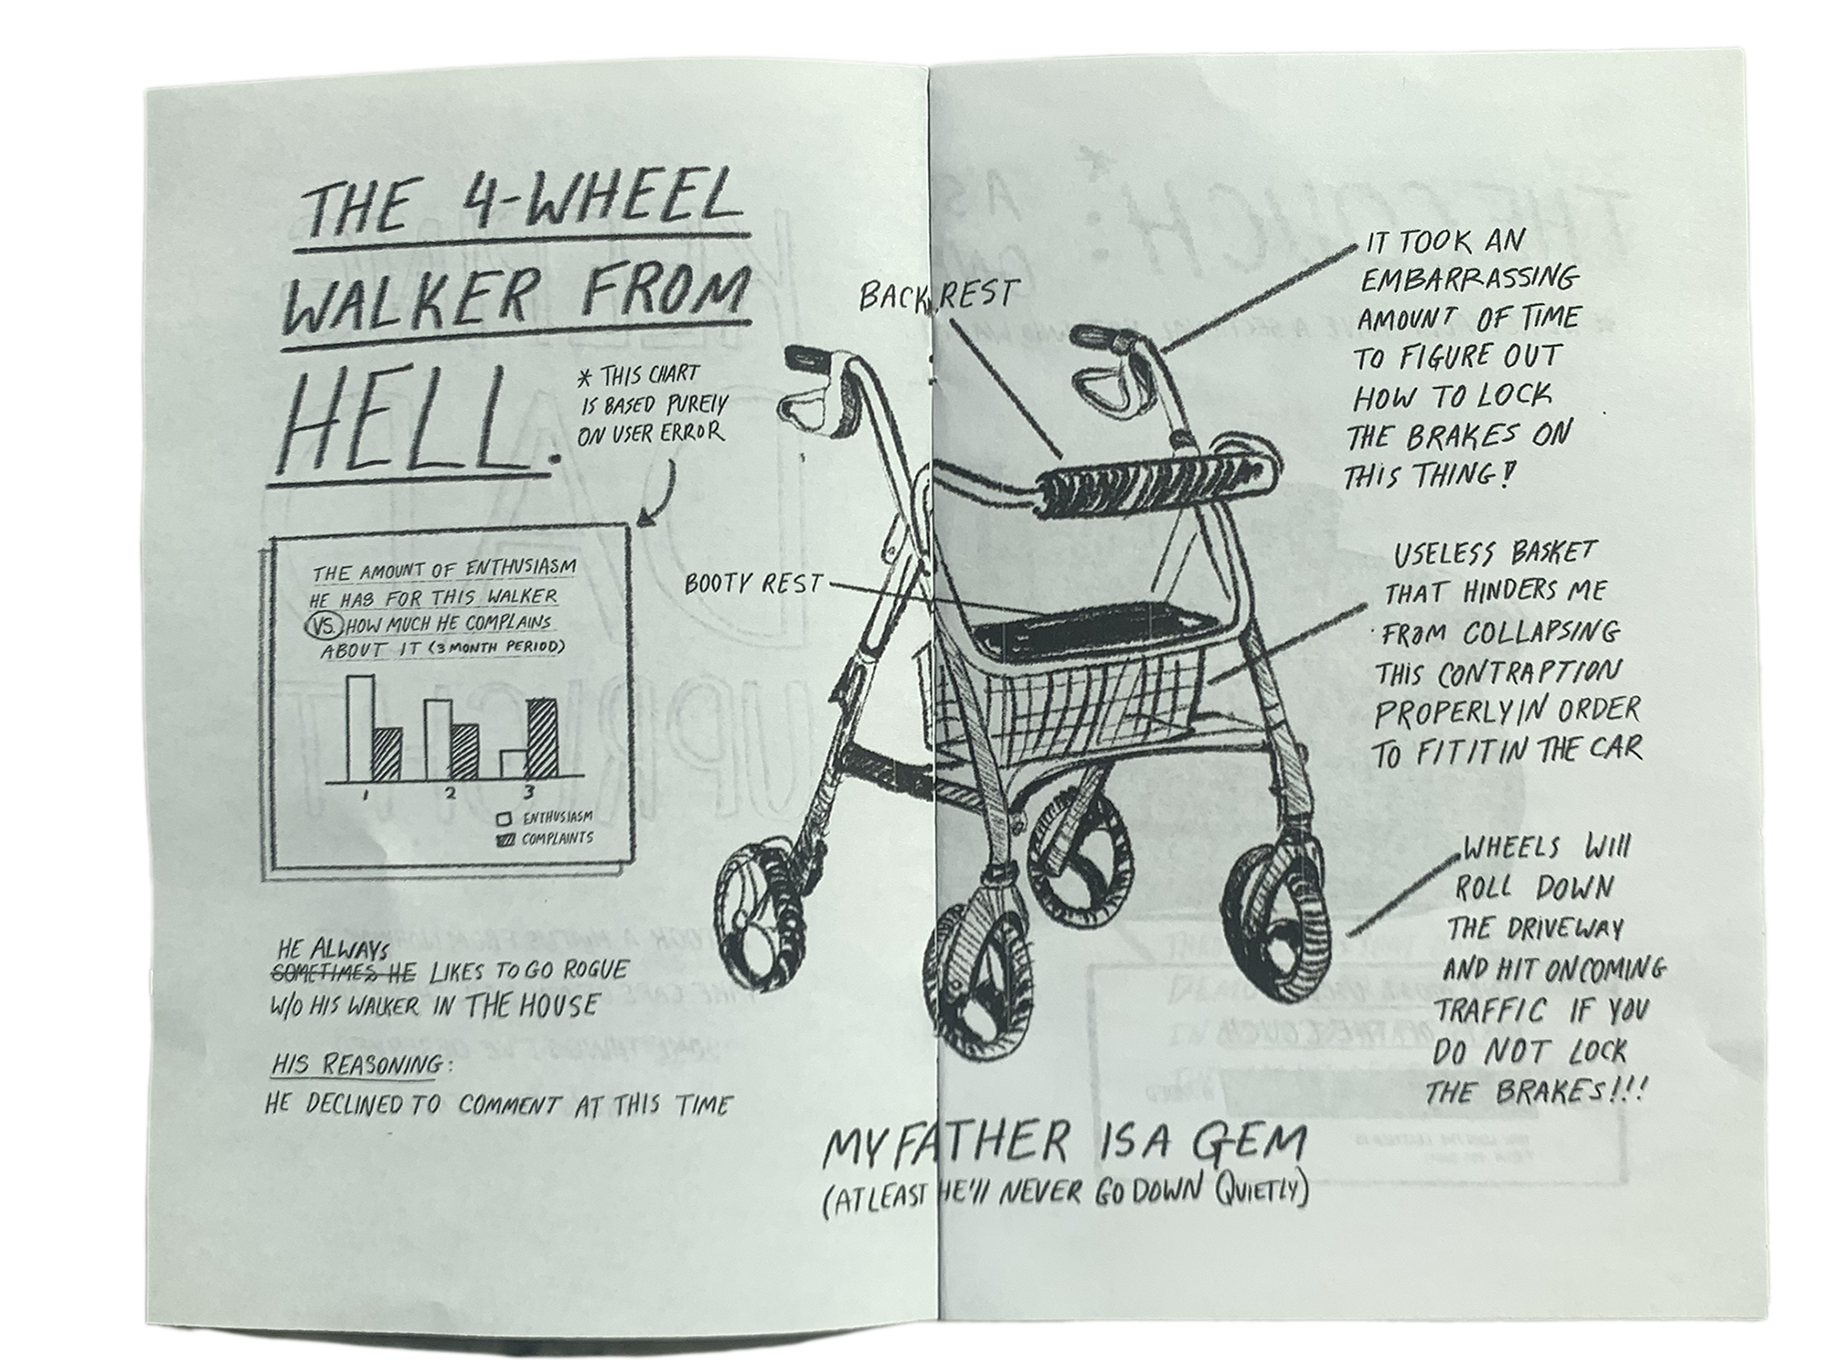 THE 4-WHEEL
WALKER FROM
HELL.
* THIS CHART
IS BASED PURELY
ON USER ERROR
THE AMOUNT OF ENTHUSIASM
HE HAS FOR THIS WALKER
VS. HOW MUCH HE COMPLAINS
ABOUT IT (3 MONTH PERIOD)
1 2 3
ENTHUSIASM
COMPLAINTS
HE ALWAYS
SOMETIMES HE LIKES TO GO ROGUE
W/O HIS WALKER IN THE HOUSE
HIS REASONING:
HE DECLINED TO COMMENT AT THIS TIME
BACK REST
BOOTY REST
IT TOOK AN
EMBARRASSING
AMOUNT OF TIME
TO FIGURE OUT
HOW TO LOCK
THE BRAKES ON
THIS THING!
USELESS BASKET
THAT HINDERS ME
FROM COLLAPSING
THIS CONTRAPTION
PROPERLY IN ORDER
TO FIT IT IN THE CAR
WHEELS WILL
ROLL DOWN
THE DRIVEWAY
AND HIT ONCOMING
TRAFFIC IF YOU
DO NOT LOCK
THE BRAKES!!!
MY FATHER IS A GEM
(AT LEAST HE'll NEVER GO DOWN QUIETLY)